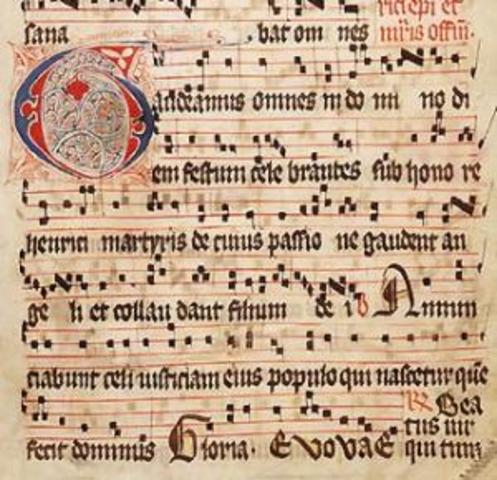 sana bat om nes
rici epi et
mris offm.
Gaudeamus omnes in do mi no di
em festum cele brantes sub hono re
henrici martyris de cuius passio ne gaudent an
ge li et collau dant filium de i V Annun
ciabunt celi iusticiam eius populo qui nascetur que
fecit dominus Gloria. EVOVAE
R Bea
tus uir
qui tim